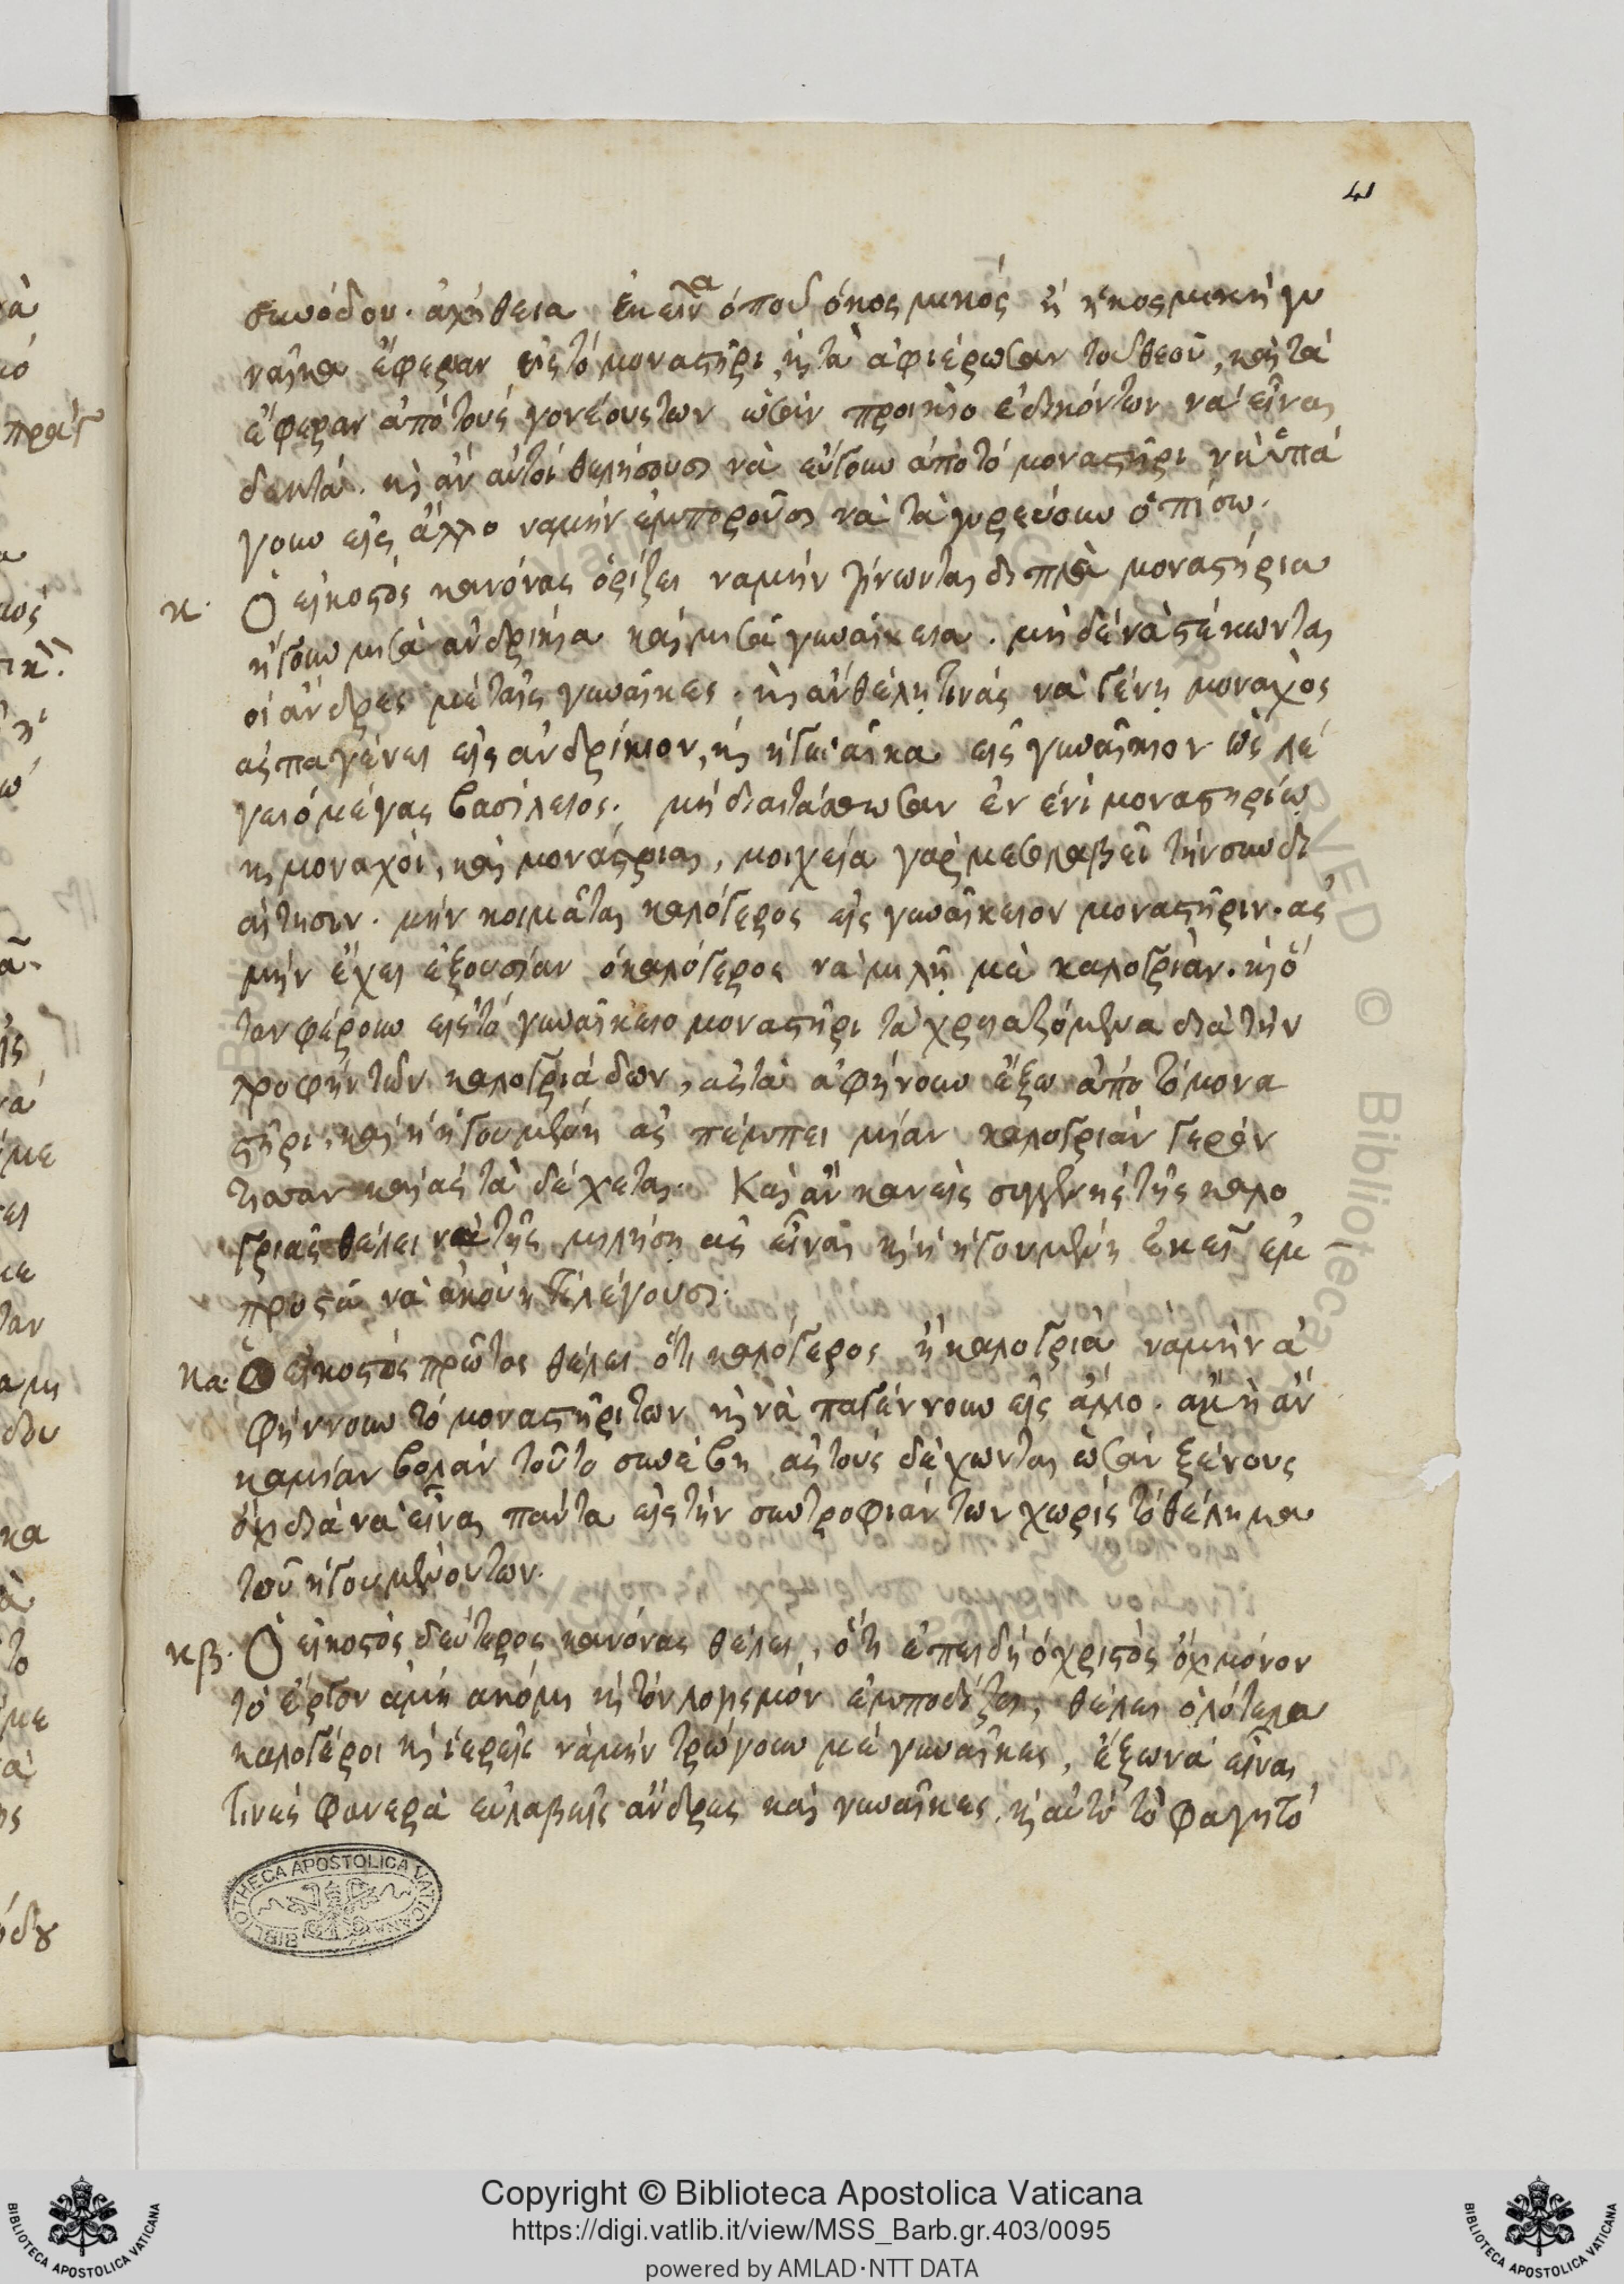 συνόδου. ἀλήθεια ἐκεῖνα ὁποῦ ὁ κοσμικός ἢ ἡ κοσμική γυ
ναῖκα ἔφεραν εἰς τὸ μοναστῆρι, ἢ τὰ ἀφιέρωσαν τοῦ θεοῦ, καὶ τὰ
ἔφεραν ἀπὸ τοὺς γονέους των ὡσὰν προικίο ἐδικόν των νὰ εἶναι
δεκτά. κὶ ἂν αὐτοὶ θελήσουσι νὰ εὔγουν ἀπὸ τὸ μοναστῆρι νὰ ὑπά
γουν εἰς ἄλλο ναμὴν ἐμποροῦσι νὰ τὰ γυρεύσουν ὀπίσω.
κ. Ὁ εἰκοστὸς κανόνας ὁρίζει ναμὴν γίνωνται διπλὰ μοναστήρια
ἤγουν μισὰ ἀνδρίκια καὶ μισὰ γυναίκεια. μηδὲ νὰ στέκωνται
οἱ ἄνδρες μὲ ταῖς γυναῖκες. κὶ ἂν θέλῃ τινάς νὰ γένῃ μοναχὸς
ἂς παγένει εἰς ἀνδρίκιον, κὶ ἡ γυναῖκα εἰς γυναίκιον ὡς λέ
γει ὁ μέγας βασίλειος. μὴ διαιτάσθωσαν ἐν ἑνὶ μοναστηρίῳ
κὶ μοναχοὶ, καὶ μονάστριαι, μοιχεία γὰρ μεσολαβεῖ τὴν συνδι
αίτησιν. μὴν κοιμᾶται καλόγερος εἰς γυναίκειον μοναστῆριν. ἂς
μὴν ἔχει ἐξουσίαν ὁ καλόγερος νὰ μιλῇ μὲ καλογριὰν. κὶ ὅ
ταν φέρουν εἰς τὸ γυναίκειο μοναστῆρι τὰ χρειαζόμενα διὰ τὴν
τροφὴν τῶν καλογριάδων, ἂς τὰ ἀφήνουν ἔξω ἀπὸ τὸ μονα
στῆρι, καὶ ἡ ἡγουμένη ἂς πέμπει μίαν καλογριὰν γερόν
τισσαν καὶ ἂς τὰ δέχεται. Καὶ ἂν κανεὶς συγγενής τῆς καλο
γριᾶς θέλει νὰ τῆς μιλήσῃ ἂς εἶναι κὶ ἡ ἡγουμένη ἐκεῖ ἐμ
προστὰ νὰ ἀκούῃ τί λέγουσι.
κα. Ὁ εἰκοστὸς πρῶτος θέλει ὅτι καλόγερος ἢ καλογριὰ ναμὴν ἀ
φήννουν τὸ μοναστῆρι των κὶ νὰ παγέννουν εἰς ἄλλο. ἀμὴ ἂν
καμίαν βολὰν τοῦτο συνέβη ἂς τοὺς δέχωνται ὡσὰν ξένους
ὄχι διὰ νὰ εἶναι πάντα εἰς τὴν συντροφιάν των χωρὶς τὸ θέλημα
τοῦ ἡγουμένου των.
κβ. Ὁ εἰκοστὸς δεύτερος κανόνας θέλει, ὅτι ἐπειδὴ ὁ χριστὸς ὄχι μόνον
τὸ ἔργον ἀμὴ ἀκόμη κὶ τὸν λογισμόν ἐμποδίζει, θέλει ὁλότελα
καλογέροι κὶ ἱερεῖς νὰ μὴν τρώγουν μὲ γυναῖκες, ἔξω νὰ εἶναι
τινὲς φανερὰ εὐλαβεῖς ἄνδρες καὶ γυναῖκες. κὶ αὐτὸ τὸ φαγητὸ
BIBLIOTHECA APOSTOLICA VATICANA
Copyright © Biblioteca Apostolica Vaticana
https://digi.vatlib.it/view/MSS_Barb.gr.403/0095
powered by AMLAD·NTT DATA